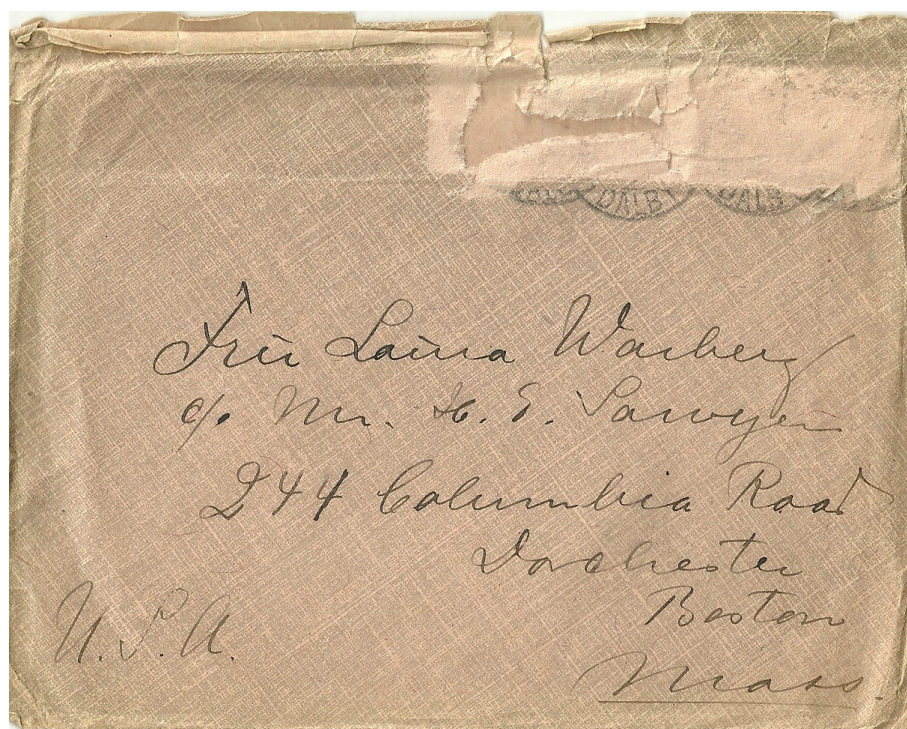 DALB DALB
Fru Laura Warberg
c/o Mr. H. E. Sawyer
244 Columbia Road
Dorchester
Boston
U.S.A.
Mass.